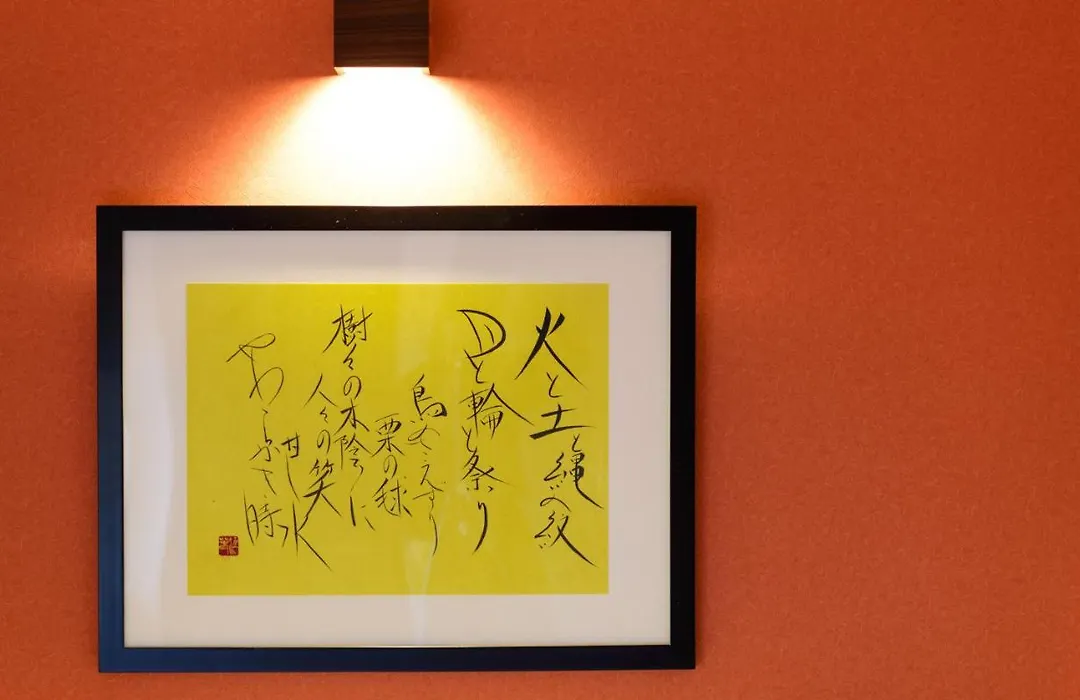 火と土と縄の紋
月と輪と祭り
鳥さえずり
栗の毬
樹々の木陰に
人々の笑
甘し水
やわらかき時